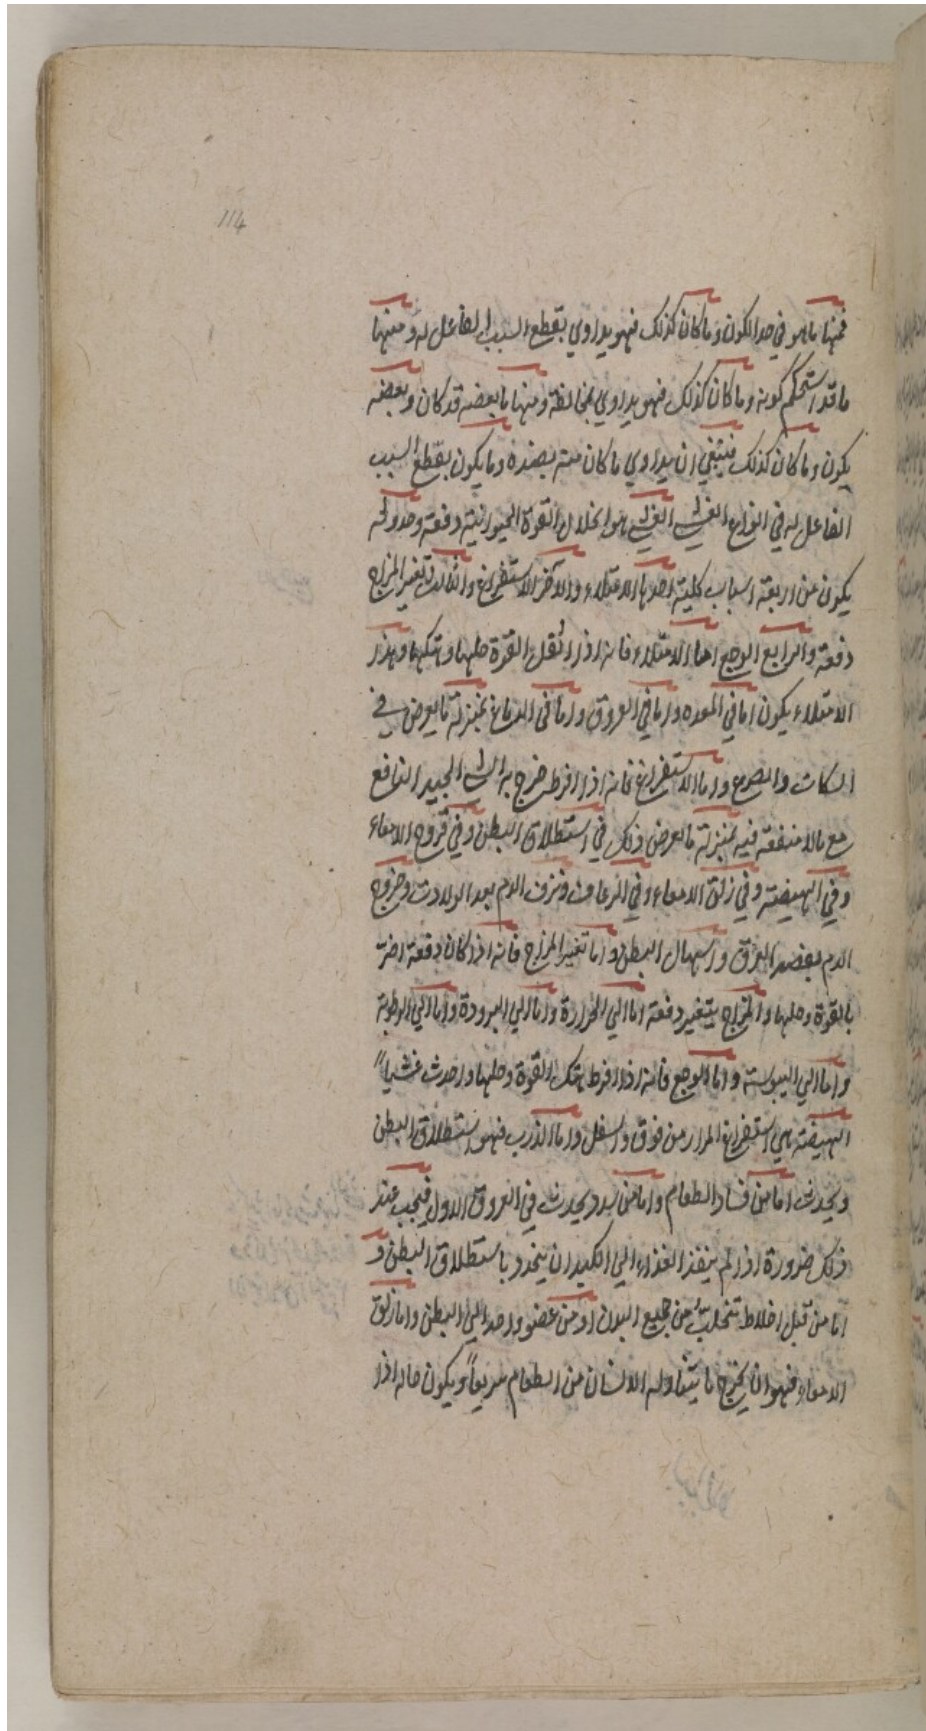 114
فمنها ما هو في حد الكون وما كان كذلك فهو يداوي بقطع السبب الفاعل له ومنها
ما قد استحكم كونه وما كان كذلك فهو يداوي بمخالفة ومنها ما بعضه قد كان وبعضه
يكون وما كان كذلك فينبغي ان يداوي ما كان منه بضده وما يكون بقطع السبب
الفاعل له في انواع الغشي الغشي هو انحلال القوة الحيوانية دفعة وحدوثه
يكون من اربعة اسباب كلية احدها الامتلاء والاخر الاستفراغ والثالث تغير المزاج
دفعة والرابع الوجع اما الامتلاء فانه اذا اثقل القوة حلها ونهكها وهذا
الامتلاء يكون اما في المعده واما في العروق واما في الدماغ بمنزلة ما يعرض في
السكات والصرع واما الاستفراغ فانه اذا افرط خرج به الشي الجيد النافع
مع مالا منفعة فيه بمنزلة ما يعرض ذلك في استطلاق البطن وفي قروح الامعاء
وفي الهيضة وفي زلق الامعاء وفي الرعاف ونزف الدم بعد الولادت وخروج
الدم بفصد العرق واسهال البطن واما تغير المزاج فانه اذا كان دفعة اضرت
بالقوة وحلها والمزاج يتغير دفعة اما الي الحرارة واما الي البرودة واما الي الرطوبة
واما الي اليبوسة واما الوجع فانه اذا افرط نهك القوة وحلها واحدث غشياً
الهيضة هي استفراغ المرار من فوق واسفل واما الذرب فهو استطلاق البطن
ويحدث اما من فساد الطعام واما من سدد يحدث في العروق الاول فيجب عند
ذلك ضرورة اذا لم ينفذ الغذاء الي الكبد ان ينحدر باستطلاق البطن و
اما من قبل اخلاط تتحلب من جميع البدن او من عضو واحد الي البطن واما زلق
الامعاء فهو ان يخرج ما يتناوله الانسان من الطعام سريعاً ويكون حاله اذا